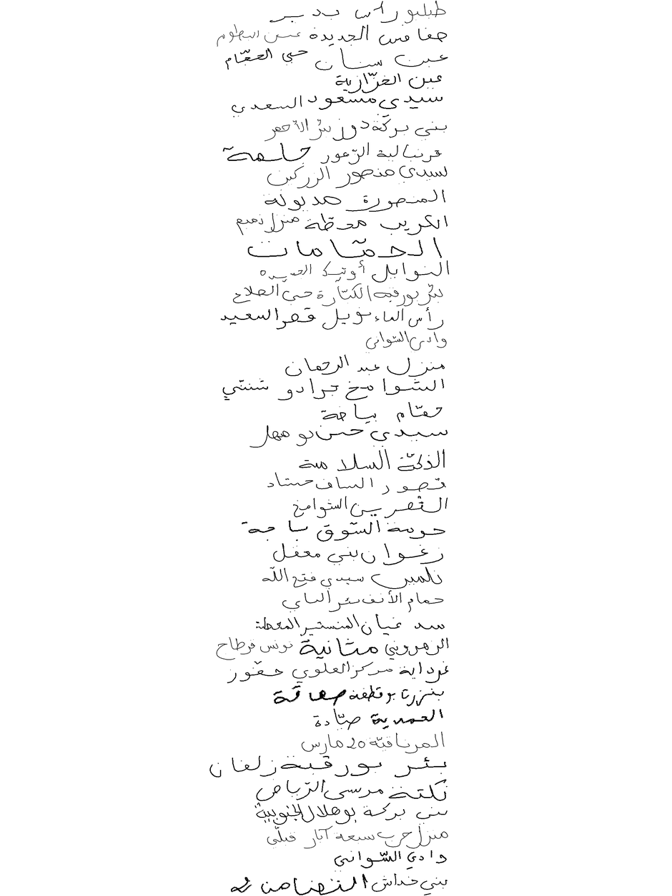 طبلبو رأس بدير
صفاقس الجديدة عين البطوم
عين سنان حي الحفام
عين الغرازية
سيدي مسعود السعدي
بني بركة دوز بئر الأحمر
قرنبالية الزهور جلمة
لسيدي منصور الزركين
المنصورة هدبولة
الكريب محطة منزل تميم
الحمامات
النوايل أوتيك الجديدة
بئر بورقبة الكتارة حي الفلاح
رأس الماء نويل قصر السعيد
وادي الشواني
منزل عبد الرحمان
الشوامخ جرادو شنني
حمام بياضة
سيدي حسن بومهل
الذكة السلامة
قصور الساف
القصرين الشوامخ
حومة السوق باجة
زغوان بني معقل
تلمين سيدي فتح الله
حمام الأنف بئر الباي
سد غيان المنستير المحطة
الزهروني متانية تونس قرطاج
غرداية مركز العلوي حفوز
بنزرت بوقطفة صفاقة
الحمدية صيادة
المرناقية 20 مارس
بئر بورقبة زلفان
تكلتة مرسى الرياض
بني بركة بوهلال الجنوبية
منزل حرب سبعة آبار قبلي
وادي الشواني
بني خداش التضامن